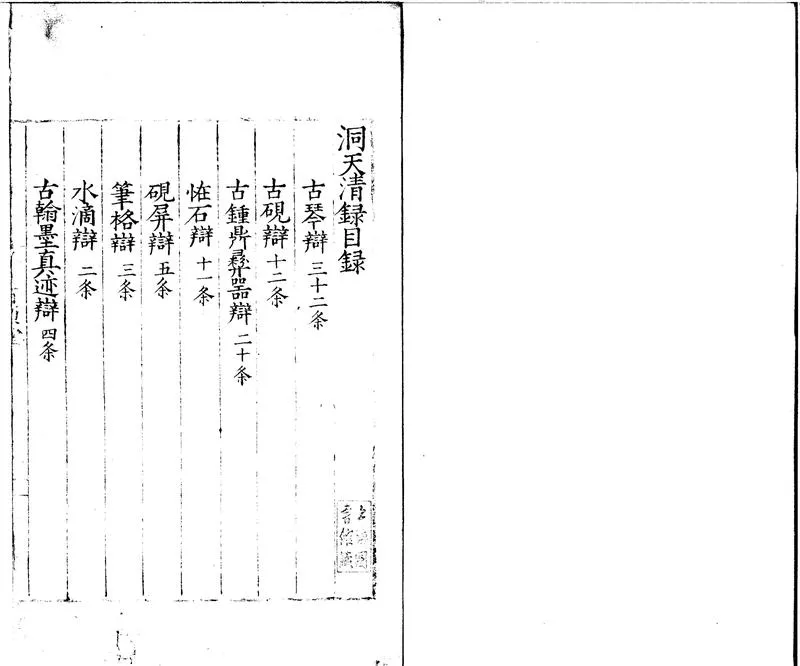 洞天清録目録
古琴辯 三十二条
古硯辯 十二条
古鍾鼎彞器辯 二十条
恠石辯 十一条
硯屏辯 五条
筆格辯 三条
水滴辯 二条
古翰墨真迹辯 四条